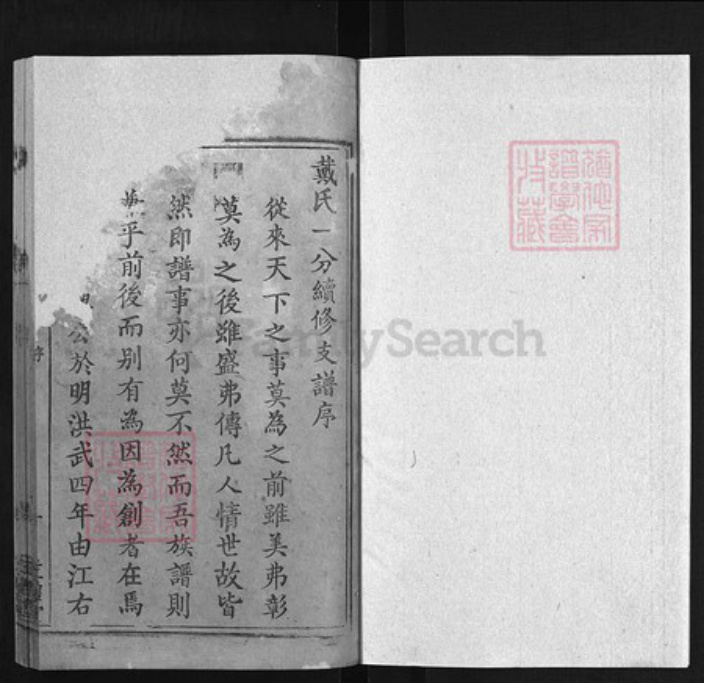 戴氏一分續修支譜序
從來天下之事莫為之前雖美弗彰
莫為之後雖盛弗傳凡人情世故皆
然即譜事亦何莫不然而吾族譜則
乎前後而别有為因為創者在焉
公於明洪武四年由江右
序
FamilySearch